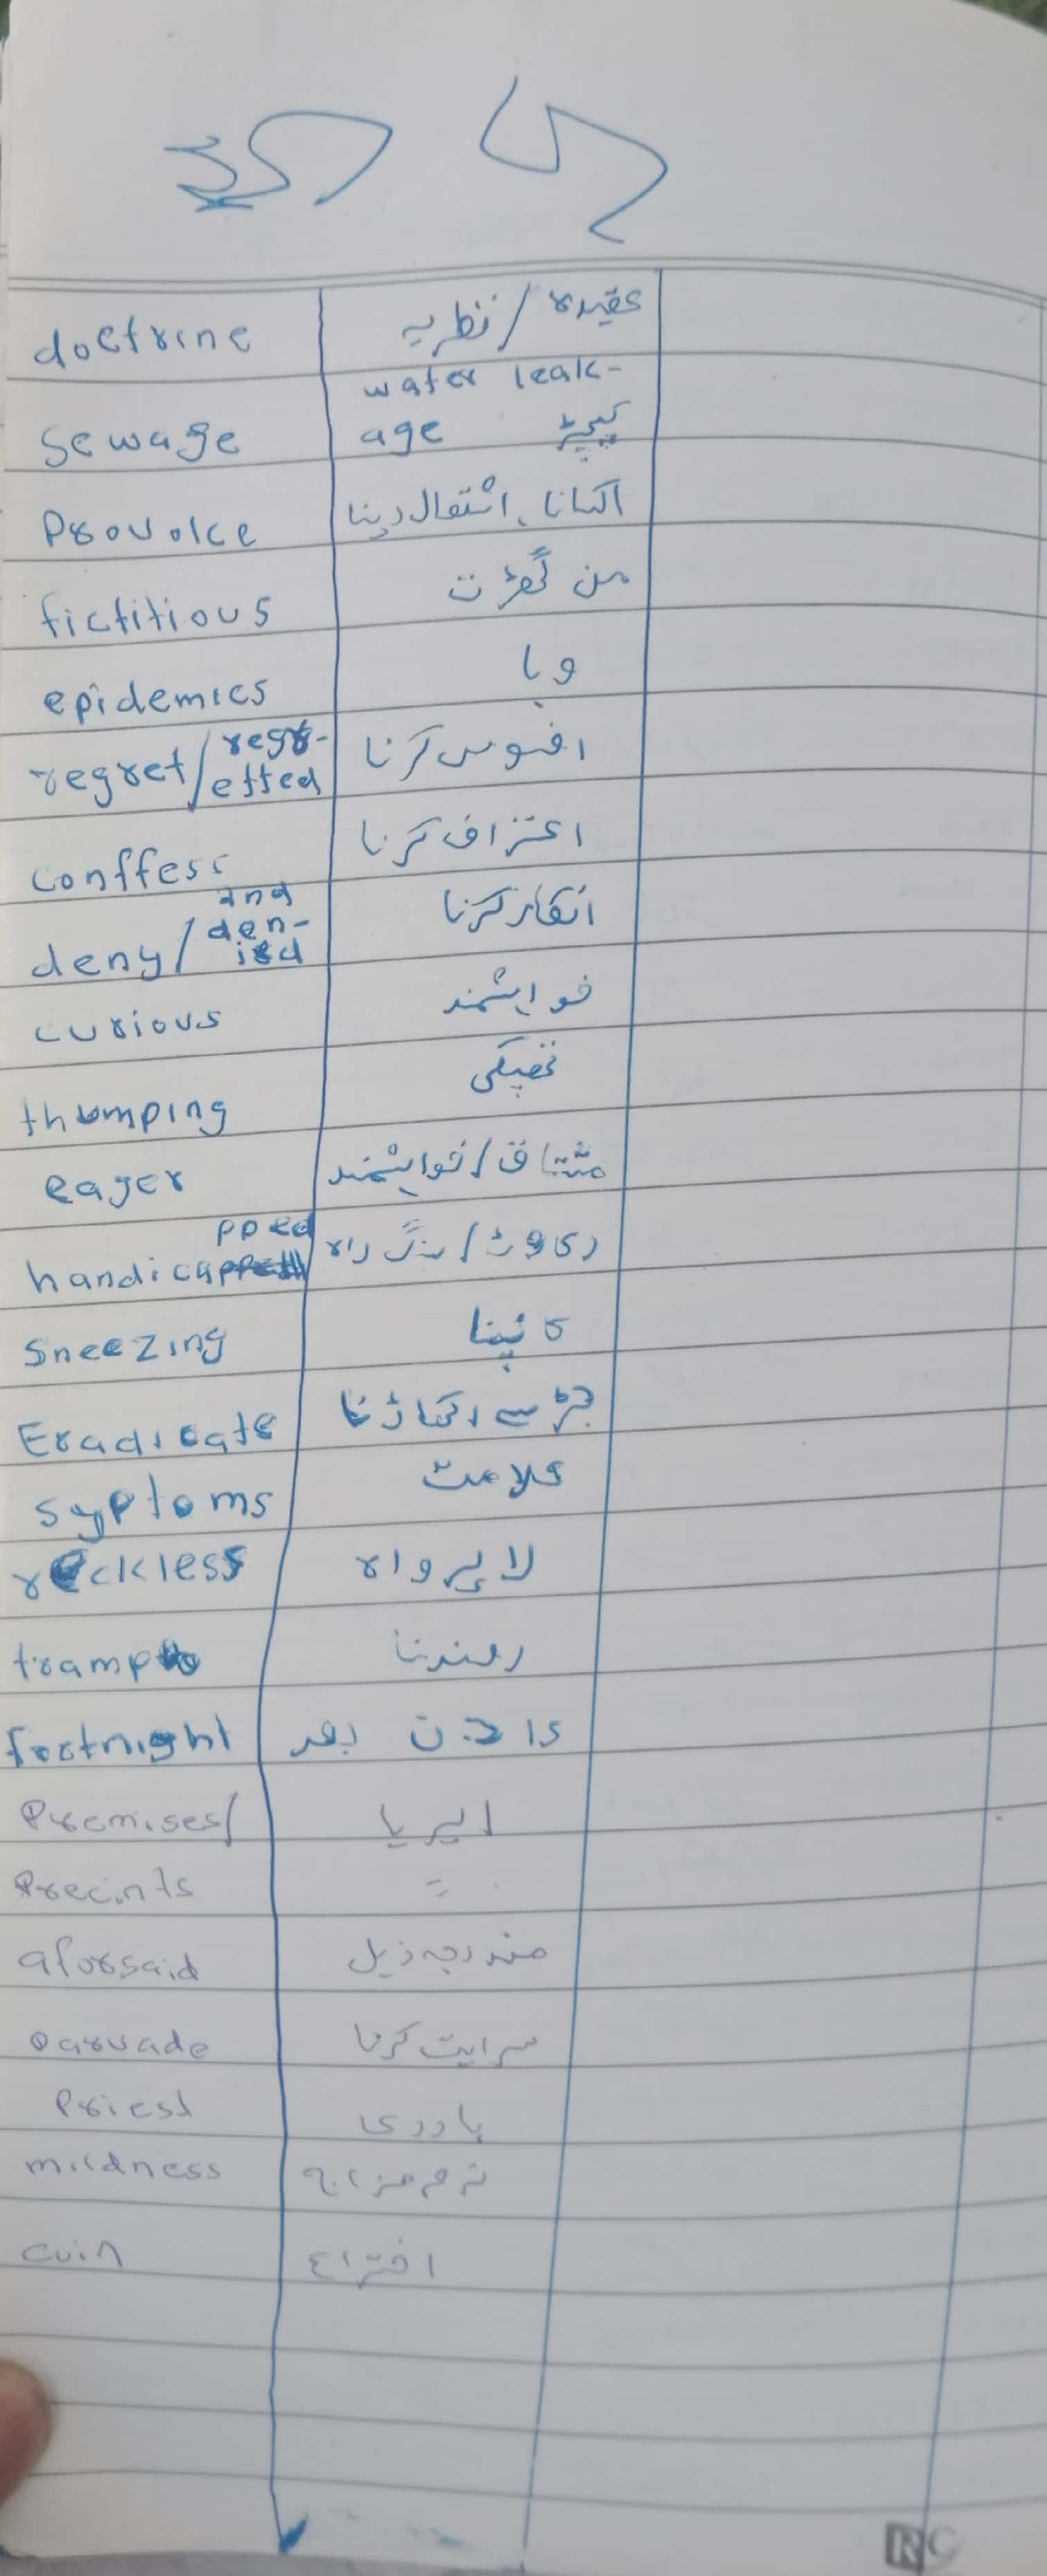 doctrine نظریہ / عقیدہ
sewage water leak-
age کیچڑ
Provoke اکسانا، اشتعال دینا
fictitious من گھڑت
epidemics وبا
regret/regr-
etted افسوس کرنا
conffess اعتراف کرنا
deny/and
den-
ied انکار کرنا
curious خواہشمند
thumping تھپکی
eager مشتاق/خواہشمند
handicapped رکاوٹ/سنگ راہ
Sneezing کانپنا
Eradicate جڑ سے اکھاڑنا
syptoms علامت
reckless لاپرواہ
tramp روندنا
fortnight 15 دن بعد
Premises/ ایریا
Precints =
aforsaid مندرجہ ذیل
parvade سرایت کرنا
Priest پادری
mildness نرم مزاج
coin اختراع
RC